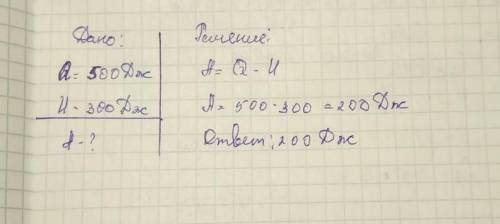 Дано:
Q = 500 Дж
U - 300 Дж
A - ?
Решение:
A = Q - U
A = 500 - 300 = 200 Дж
Ответ: 200 Дж